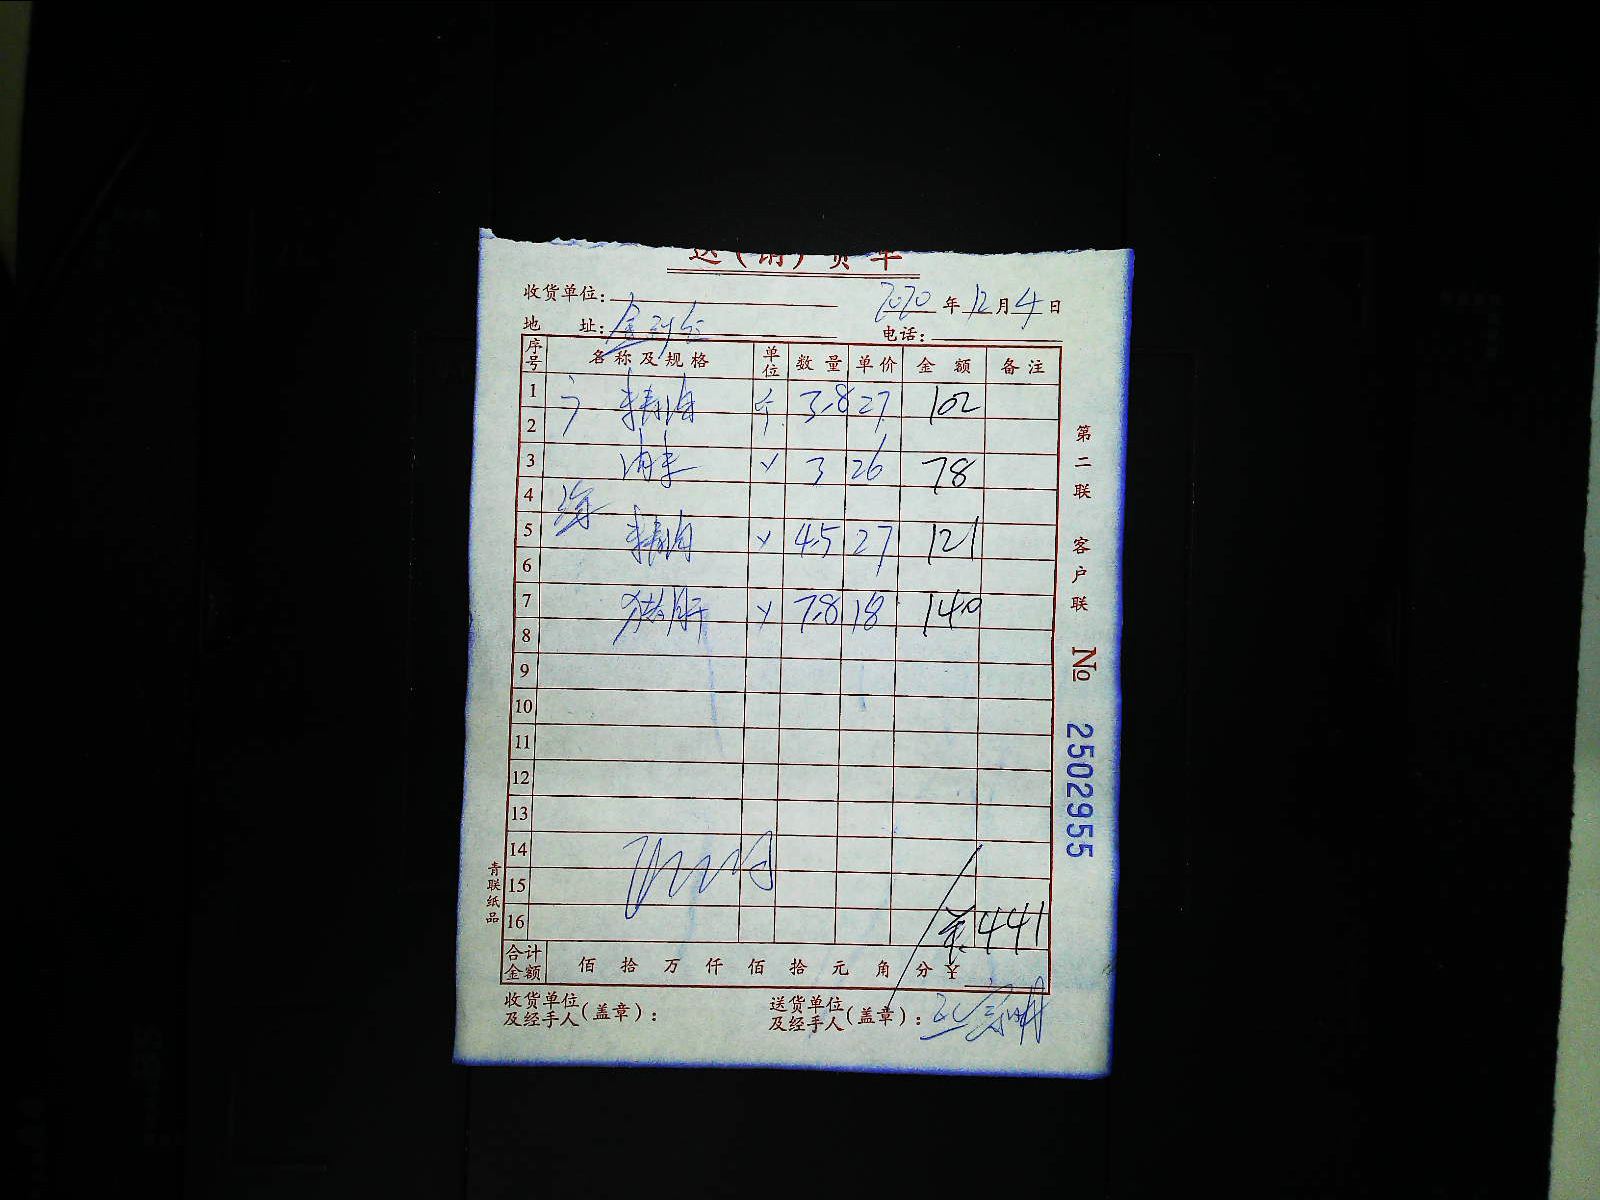 送(销)货单
收货单位: 2020年12月4日
地 址: 电话:
序号 名称及规格 单位 数量 单价 金额 备注
1 精肉 斤 3.8 27 102
2
3 肉末 3 26 78
4
5 精肉 4.5 27 121
6
7 猪肝 7.8 18 140
8
9
10
11
12
13
14
15
16 441
合计金额 佰 拾 万 仟 佰 拾 元 角 分 ¥
收货单位及经手人(盖章): 送货单位及经手人(盖章):
第二联 客户联
No 2502955
青联纸品